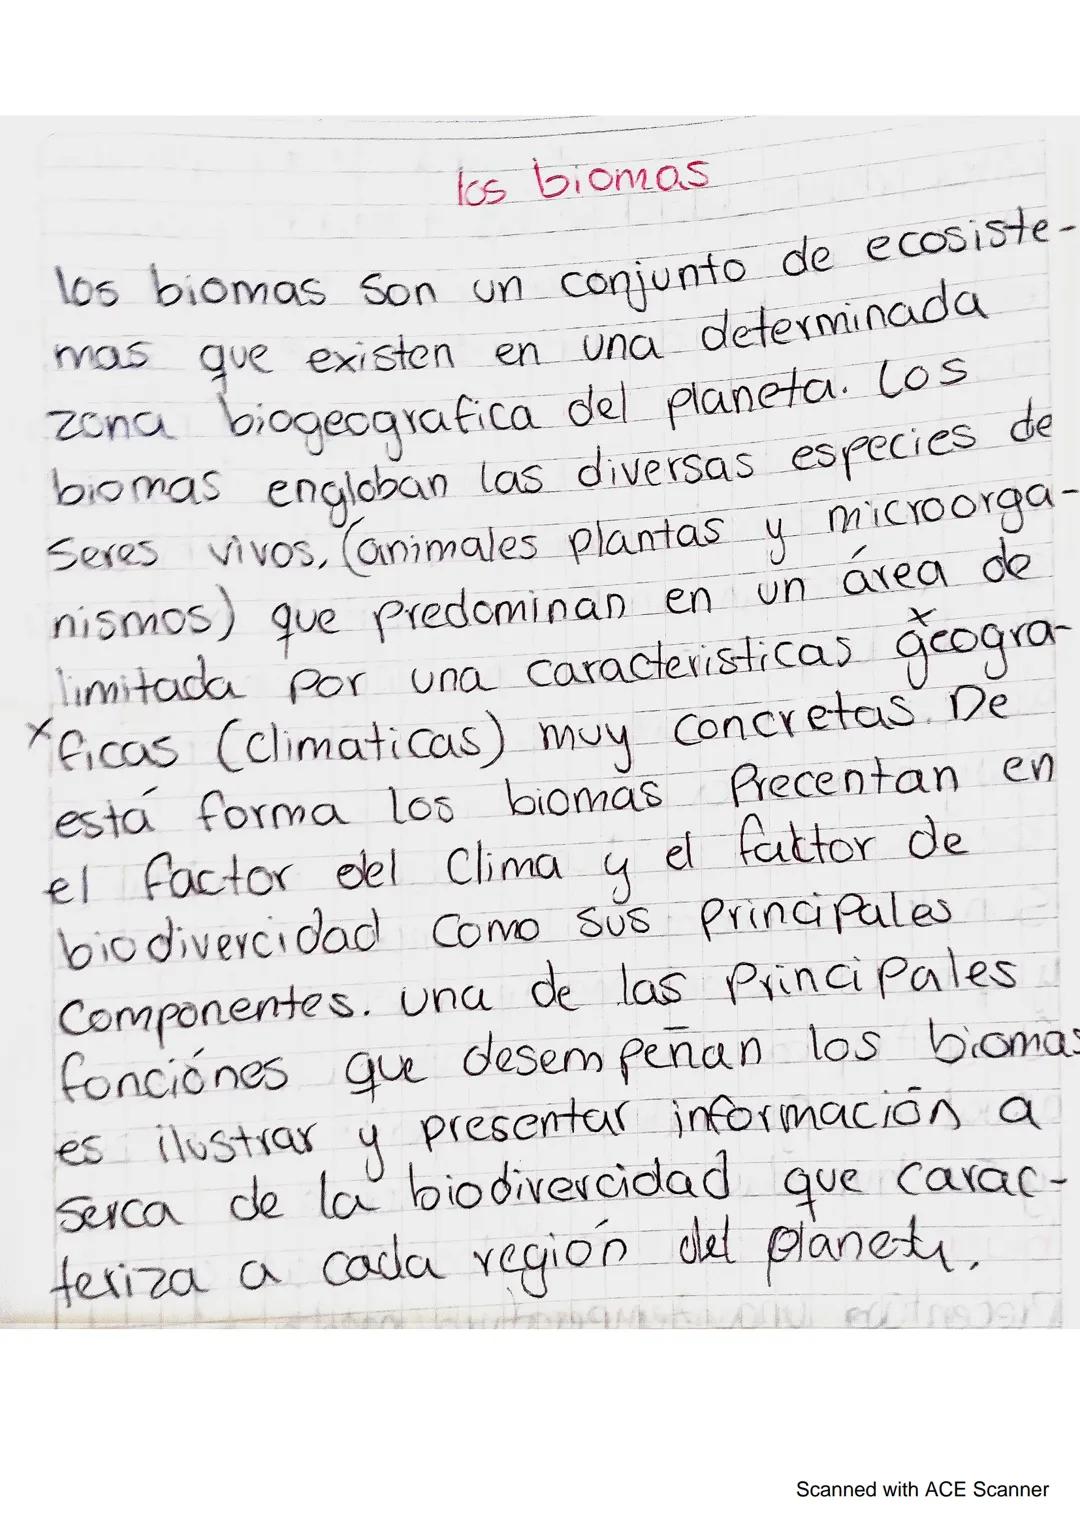 los biomas
los biomas son un conjunto de ecosiste-
mas que existen en una determinada
zona biogeografica del planeta. Los
biomas engloban las diversas especies de
seres vivos, (animales plantas y microorga-
nismos) que predominan en un área de
limitada por una caracteristicas geogra-
ficas (climaticas) muy concretas. De
está forma los biomas Precentan en
el factor del Clima y el faktor de
biodivercidad Como sus Principales
Componentes. una de las Principales
fonciónes que desempeñan los biomas
es ilustrar y presentar información a
serca de la biodivercidad que carac-
teriza a cada región del planeta.
Scanned with ACE Scanner